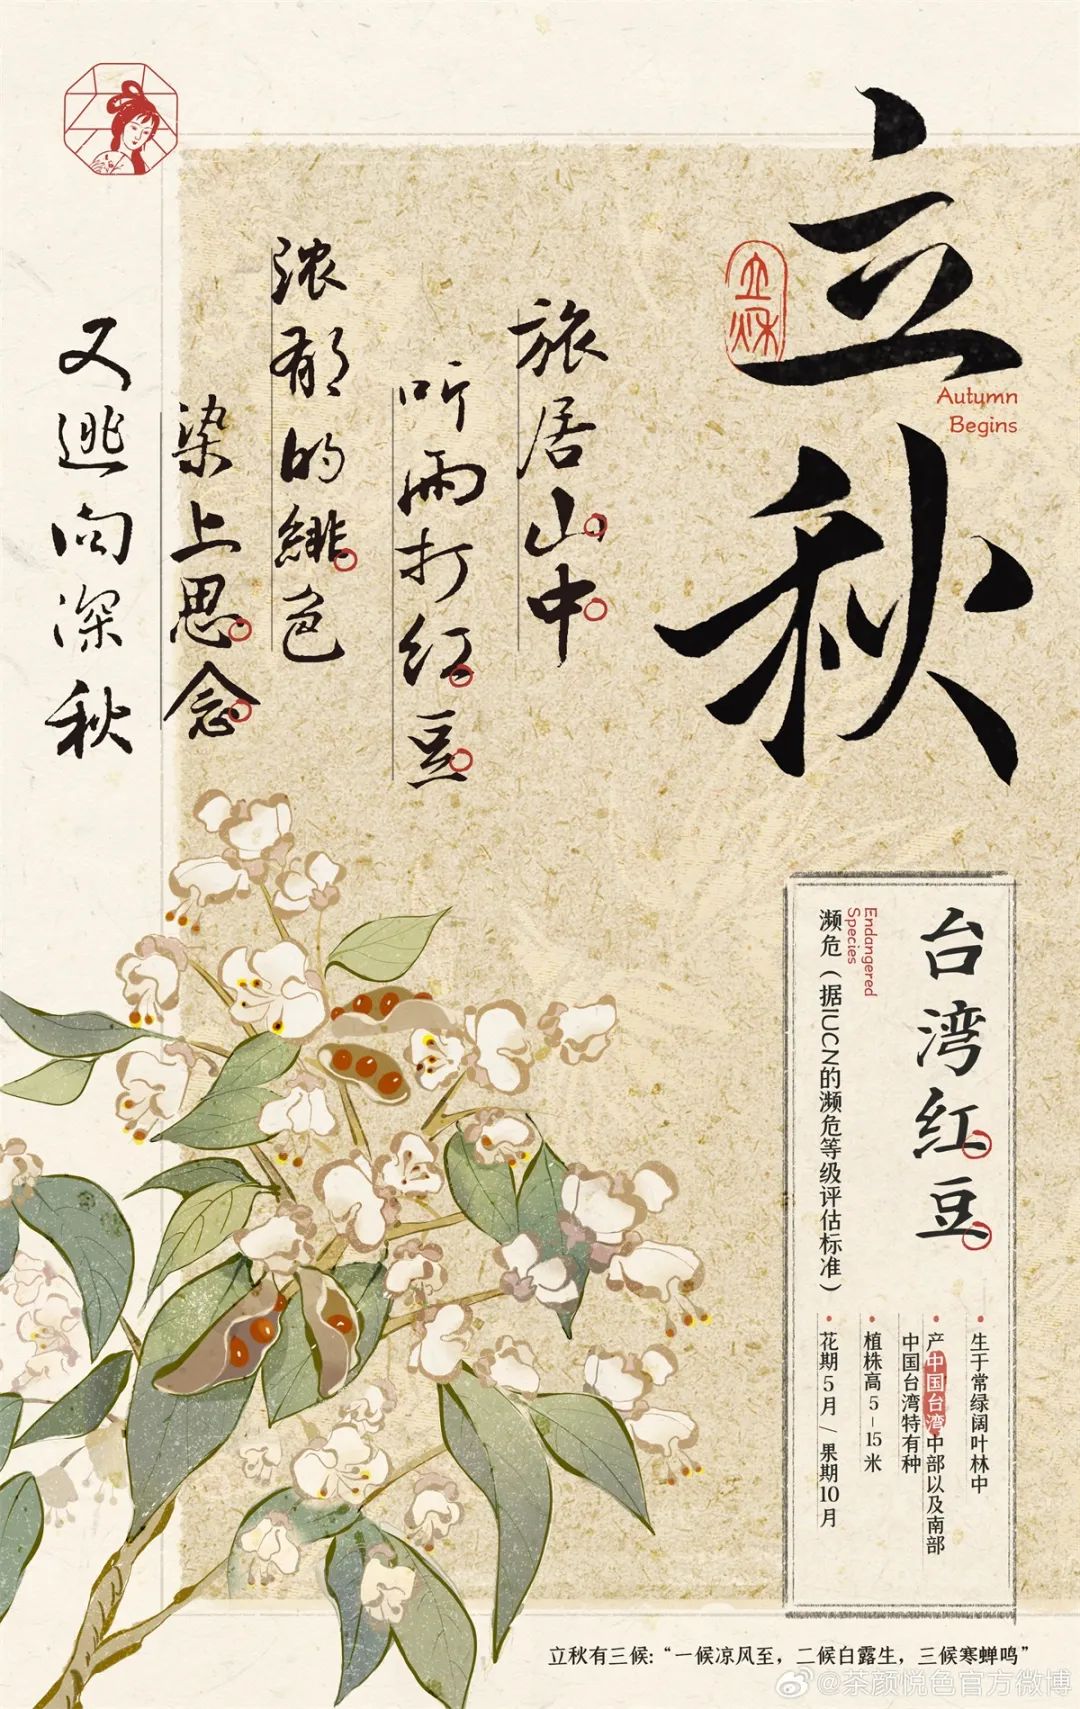 立秋
立秋
Autumn
Begins
旅居山中
听雨打红豆
浓郁的绯色
染上思念
又逃向深秋
台湾红豆
Endangered
Species
濒危（据IUCN的濒危等级评估标准）
生于常绿阔叶林中
产中国台湾中部以及南部
中国台湾特有种
植株高5-15米
花期5月/果期10月
立秋有三候:“一候凉风至，二候白露生，三候寒蝉鸣”
@茶颜悦色官方微博